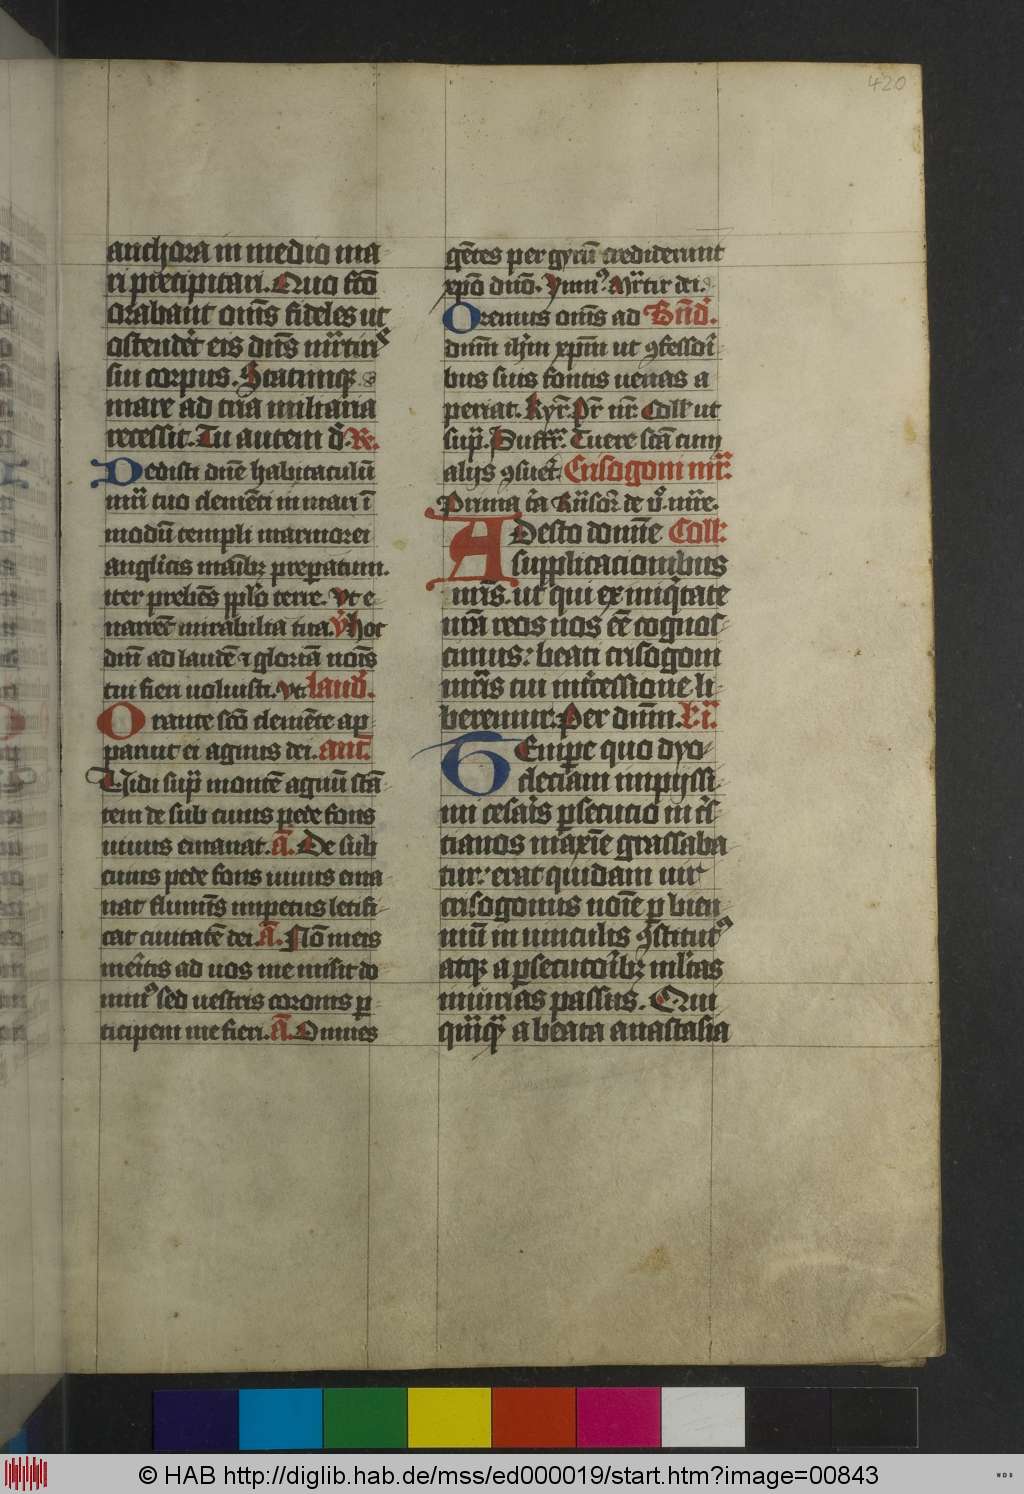 420
anchora in medio ma-
ri precipitari. Quo fc̄o
orabant om̄s fideles ut
ostender̄t eis dn̄s mr̄tiris
sui corpus. Statimqꝫ
mare ad tria miliaria
recessit. Tu autem d̄. R.
Dedisti dn̄e habitaculū
mr̄i tuo clemēti in mari ī
modū templi marmorei
anglicis manibꝫ preparatum.
iter prebēs pp̄lo terre. Vt e
narrēt mirabilia tua. V̄ hoc
dn̄i ad laudē ⁊ gloriā nōis
tui fieri uoluisti. Vt. laud̄.
Orante scō clemēte ap-
paruit ei agnus dei. an̄t.
Uidi supͣ montē agnū stā-
tem de sub cuius pede fons
uiuus emanat. ā. De sub
cuius pede fons uiuus ema-
nat flumīs impetus letifi-
cat ciuitatē dei. Ā. Nō meis
meritis ad uos me misit do
minꝰ sed uestris coronis ꝑ-
ticipem me fieri. Ā. Omnes
gētes per gyrū crediderunt
xp̄o dn̄o. Ymnꝰ. Mr̄tir dei.
Oremus om̄s ad Bn̄d̄.
dn̄m ih̄m xp̄m ut ꝯfessori-
bus suis fontis uenas a
periat. Kyr̄. Pr̄ nr̄. Coll̄ ut
supͣ. Suffr̄. Tuere scā cum
alijs ꝯsuet̄. Crisogoni mr̄.
Adesto domīe Coll̄
supplicacionibus
nr̄is. ut qui ex iniqͥtate
nr̄a reos nos eē cognos-
cimus: beati crisogoni
mr̄is tui int̄cessione li-
beremur. Per dn̄m. Li.
Tempe quo dyo-
cleciani impijssi-
mi cesaris ꝑsecucio in cͥs-
tianos maxīe grassaba-
tur: erat quidam uir
crisogonus noīe ꝑ bien-
niū in uinculis ꝯstitutꝰ
atqꝫ a ꝑsecutoribꝫ ml̄tas
iniurias passus. Qui
a beata anastasia
© HAB http://diglib.hab.de/mss/ed000019/start.htm?image=00843